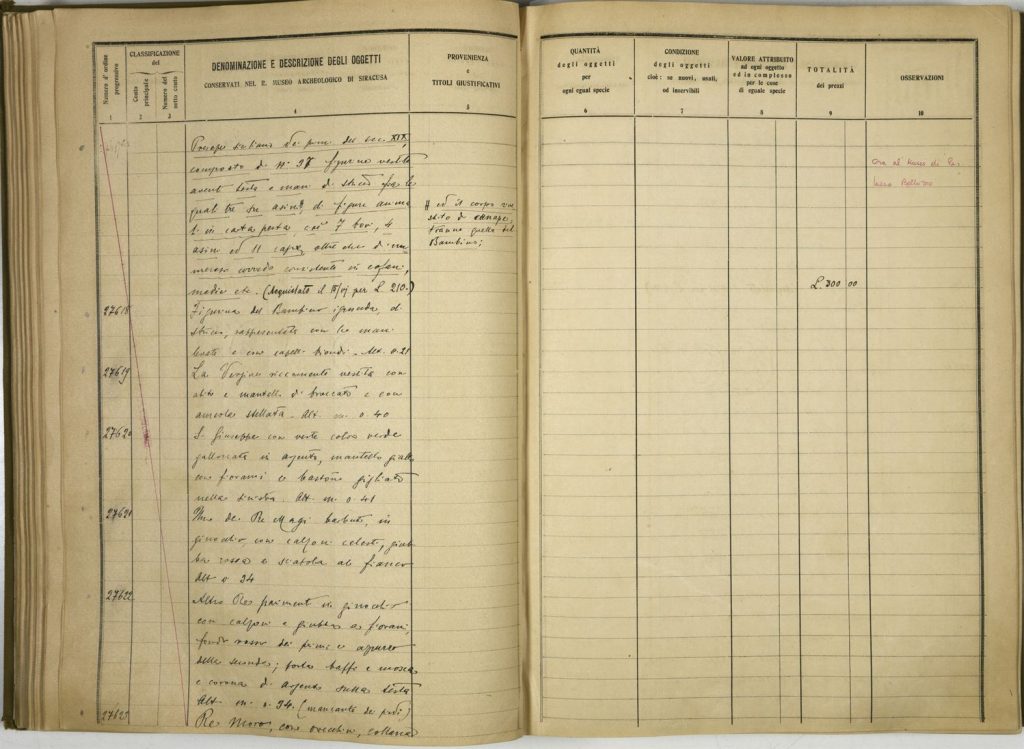 Numero d'ordine progressivo
CLASSIFICAZIONE
del
Conto principale
Numero del sotto conto
DENOMINAZIONE E DESCRIZIONE DEGLI OGGETTI
CONSERVATI NEL R. MUSEO ARCHEOLOGICO DI SIRACUSA
PROVENIENZA
e
TITOLI GIUSTIFICATIVI
1
2
3
4
5
Presepe siciliano dei primi del sec. XIX,
composto di nº 37 figurine vestite
aventi testa e mani di stucco fra le
quali tre su asini #, di figure anima
li in carta pesta cioè 7 bovi, 4
asini ed 11 capre, oltre che di un
meroso corredo consistente in cofani,
madie etc. (Acquistato il per L. 210.)
# ed il corpo ve
stito di canape,
tranne quella del
Bambino;
27618
Figurina del Bambino ignuda, di
stucco, rappresentata con le mani
levate e con capelli biondi. Alt. 0.21
27619
La Vergine riccamente vestita con
abito e mantello di broccato e con
aureola stellata. Alt. m. 0.40
27620
S. Giuseppe con veste color verde
gallonata in argento, mantello giallo
con fiorami e bastone gigliato
nella sinistra. Alt. m. 0.41
27621
Uno dei Re Magi barbuto, in
ginocchio, con calzoni celesti, giub
ba rossa e scatola al fianco
Alt. 0.34
27622
Altro Re parimenti in ginocchio
con calzoni e giubba a fiorami,
fondo rosso dei primi e
della seconda; porta baffi e mosca
e corona di argento sulla testa
Alt. m. 0.34. (mancante dei piedi)
27623
Re Moro, con orecchini, collana
QUANTITÀ
degli oggetti
per
ogni egual specie
CONDIZIONE
degli oggetti
cioè: se nuovi, usati,
od inservibili
VALORE ATTRIBUITO
ad ogni oggetto
ed in complesso
per le cose
di eguale specie
TOTALITÀ
dei prezzi
OSSERVAZIONI
6
7
8
9
10
Ora al Museo di Pa-
lazzo Bellomo
L. 300 00